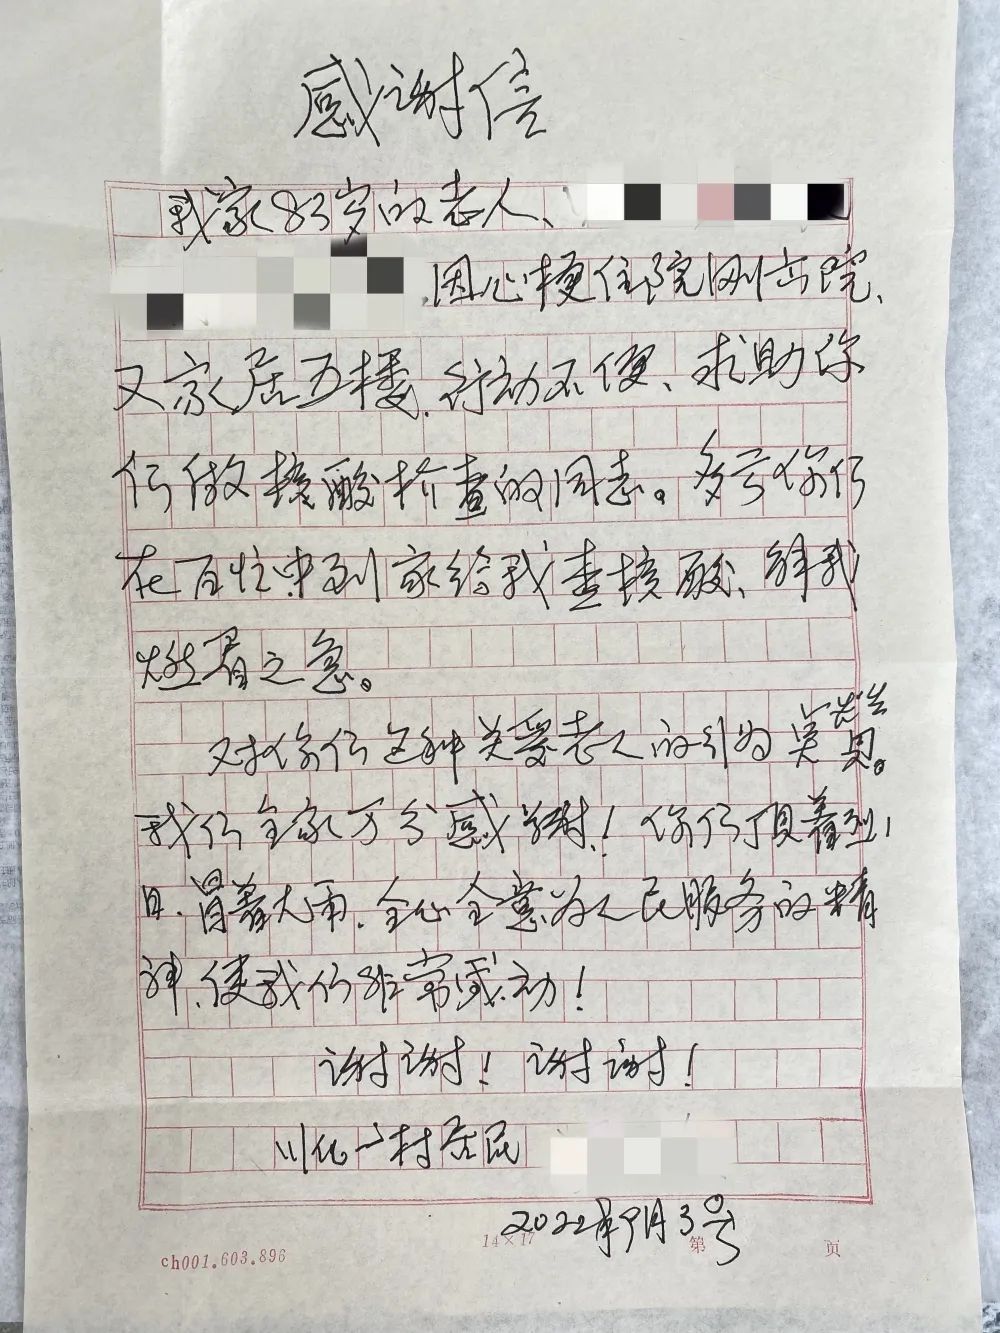 感谢信
我家83岁的老人、
因心梗住院刚出院、
又家居五楼、行动不便、求助你
们做核酸检查的同志。多亏你们
在百忙中到家给我查核酸、解我
燃眉之急。
对你们这种关爱老人的行为
我们全家万分感谢！你们顶着烈
日、冒着大雨、全心全意为人民服务的精
神、使我们非常感动！
谢谢！谢谢！
川化一村居民
2022年9月3号
ch001.603.896
14×17
第 页